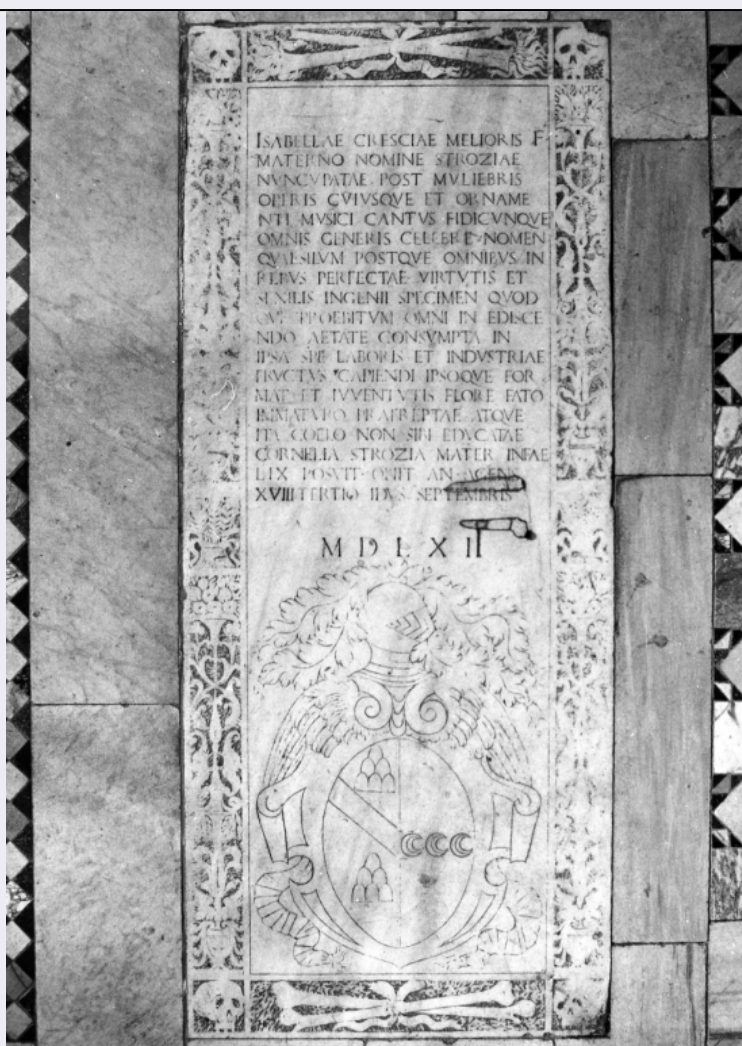 ISABELLAE CRESCIAE MELIORIS F
MATERNO NOMINE STROZIAE
NVNCVPATAE POST MVLIEBRIS
OPERIS CVIVSQVE ET ORNAME
NTI MVSICI CANTVS FIDICVNQVE
OMNIS GENERIS CELEBRE NOMEN
POSTQVE OMNIBVS IN
REBVS PERFECTAE VIRTVTIS ET
INGENII SPECIMEN QVOD
OMNI IN EDISCE
NDO AETATE CONSVMPTA IN
IPSA SPE LABORIS ET INDVSTRIAE
FRVCTVS CAPIENDI IPSOQVE FOR
MAE ET IVVENTVTIS FLORE FATO
IMMATVRO PRAEREPTAE ATQVE
ITA COELO NON SIBI EDVCATAE
CORNELIA STROZIA MATER INFAE
LIX POSVIT OBIIT AN AGENS
XVIII TERTIO IDVS SEPTEMBRIS
MDLXII